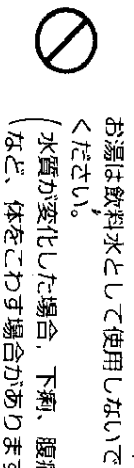 お湯は飲料水として使用しないで
ください。
(水質が変化した場合、下痢、腹痛
など、体をこわす場合があります